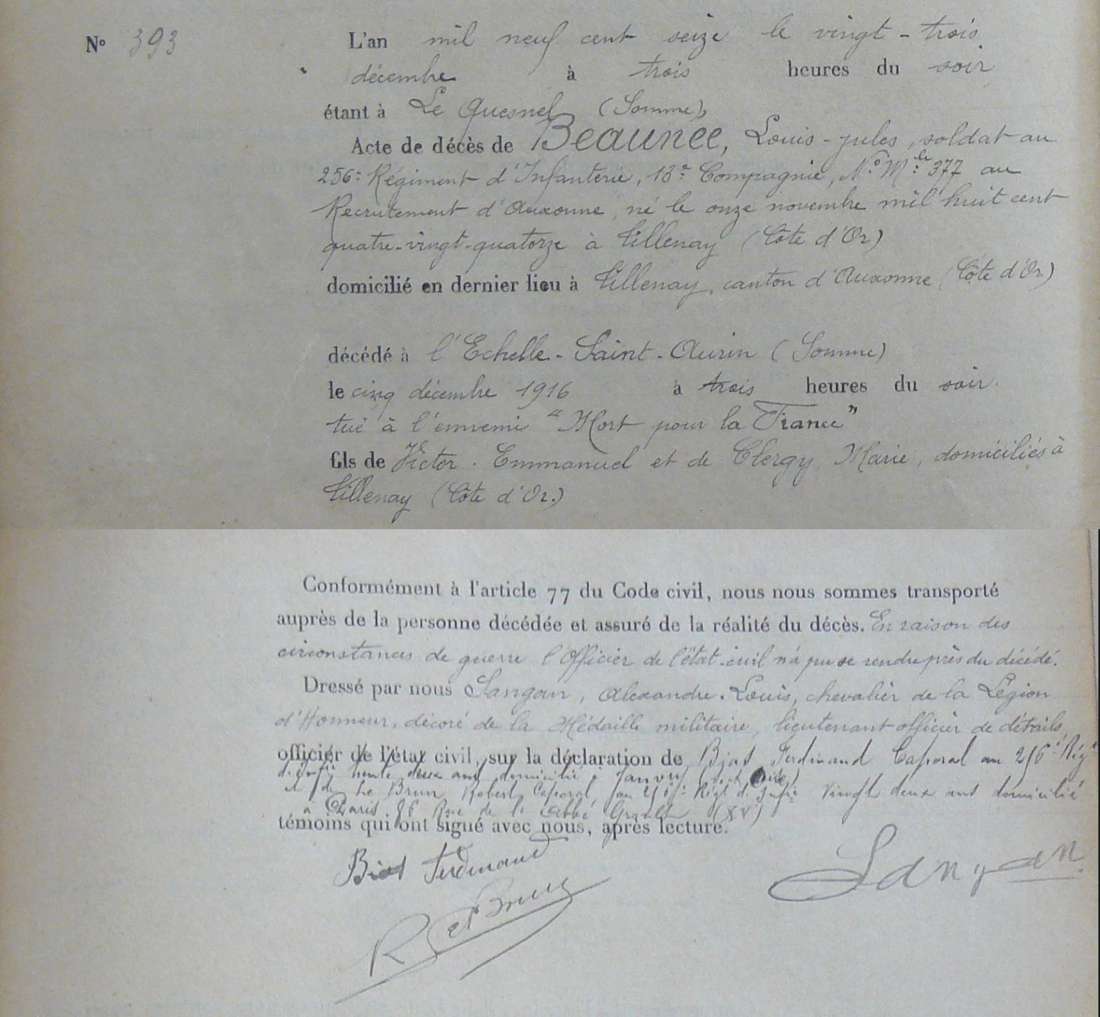 N° 393
L'an mil neuf cent seize le vingt-trois
décembre à trois heures du soir
étant à Le Quesnel (Somme)
Acte de décès de Beaunée, Louis-jules, soldat au
256e Régiment d'Infanterie, 18e Compagnie, No Mle 377 au
Recrutement d'Auxonne, né le onze novembre mil huit cent
quatre-vingt-quatorze à Tillenay (Côte d'Or)
domicilié en dernier lieu à Tillenay, canton d'Auxonne (Côte d'Or)
décédé à l'Echelle-Saint-Aurin (Somme)
le cinq décembre 1916 à trois heures du soir.
tué à l'ennemi "Mort pour la France"
fils de Victor. Emmanuel et de Clergy Marie, domiciliés à
Tillenay (Côte d'Or.)
Conformément à l'article 77 du Code civil, nous nous sommes transporté
auprès de la personne décédée et assuré de la réalité du décès. En raison des
circonstances de guerre l'Officier de l'état-civil n'a pu se rendre près du décédé.
Dressé par nous Sangan, Alexandre-Louis, chevalier de la Légion
d'Honneur, décoré de la Médaille militaire, lieutenant officier de détails
officier de l'état civil, sur la déclaration de Biot Ferdinand Caporal au 256e Rég
d'Infie trente deux ans domicilié à
et de Le Brun Robert Caporal au 256e Régt d'Infie vingt deux ans domicilié
à Paris Rue de l'Abbé Groult (XV)
témoins qui ont signé avec nous, après lecture.
Biot Ferdinand
R Le Brun
Sangan